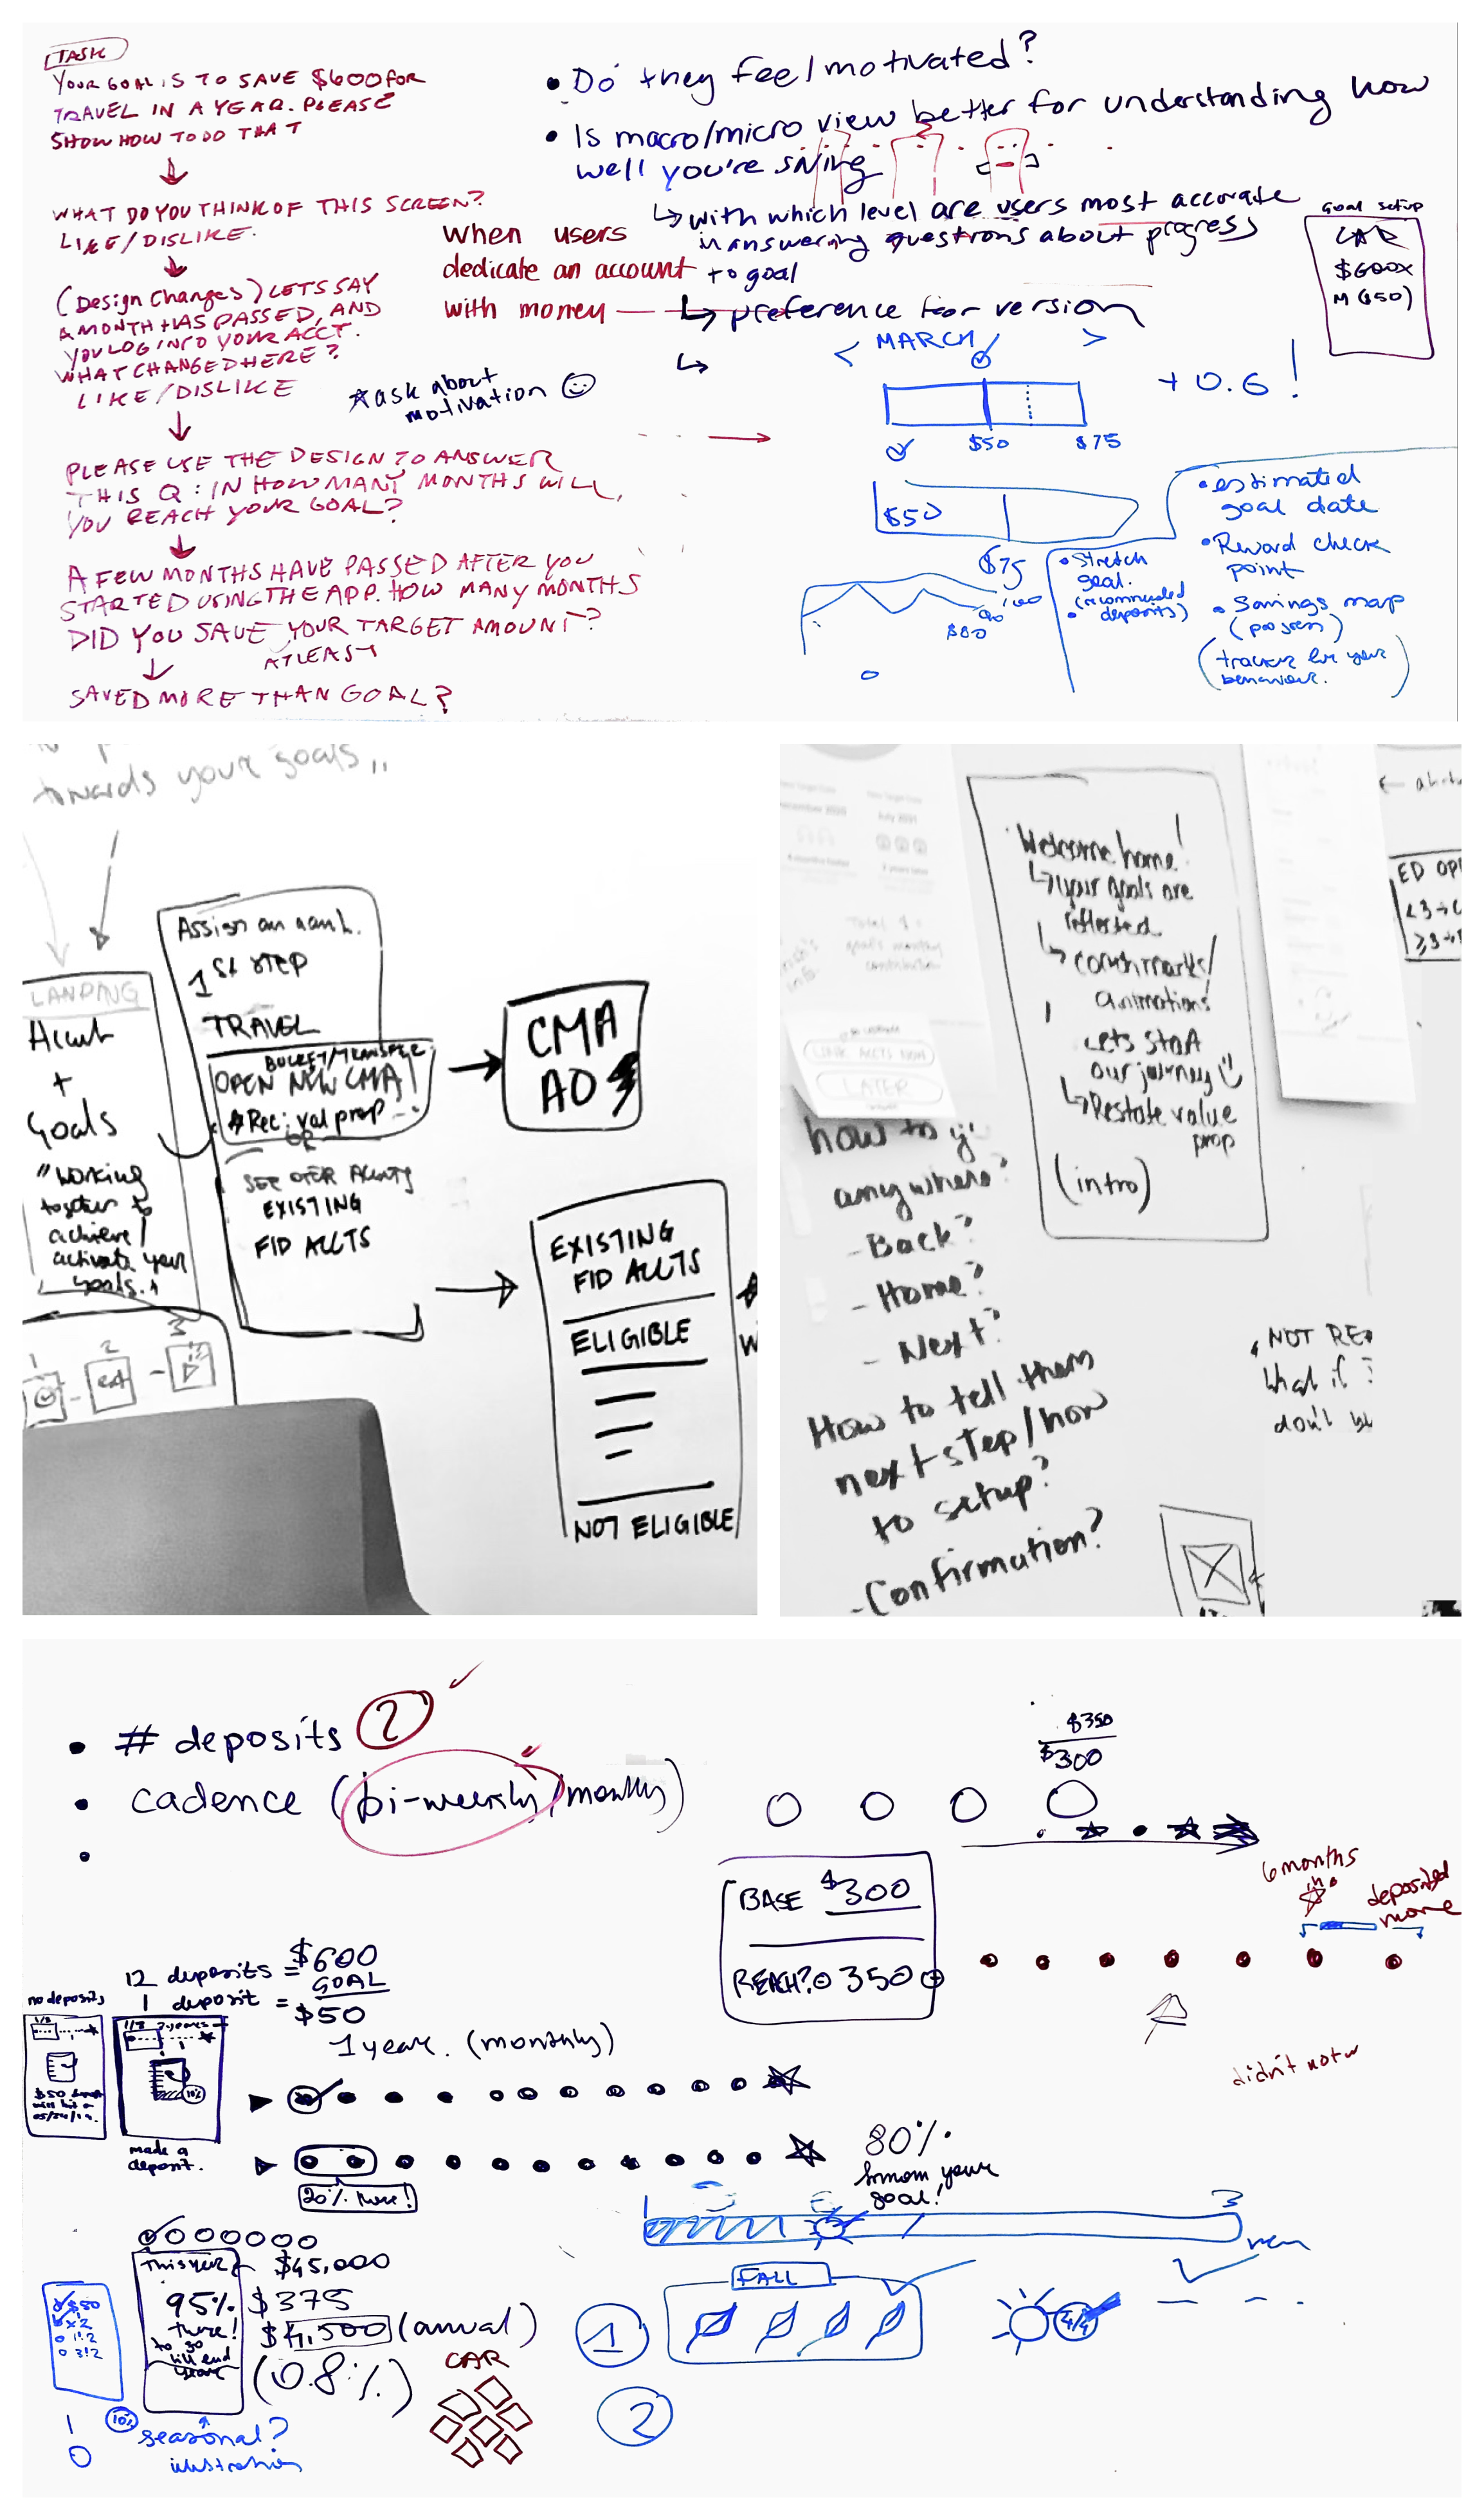 TASK
YOUR GOAL IS TO SAVE $600 FOR
TRAVEL IN A YEAR. PLEASE
SHOW HOW TO DO THAT
WHAT DO YOU THINK OF THIS SCREEN?
LIKE/DISLIKE.
(Design Changes) LETS SAY
A MONTH HAS PASSED, AND
YOU LOG INTO YOUR ACCT.
WHAT CHANGED HERE?
LIKE/DISLIKE
*ask about
motivation
PLEASE USE THE DESIGN TO ANSWER
THIS Q: IN HOW MANY MONTHS WILL
YOU REACH YOUR GOAL?
A FEW MONTHS HAVE PASSED AFTER YOU
STARTED USING THE APP. HOW MANY MONTHS
DID YOU SAVE YOUR TARGET AMOUNT?
AT LEAST
SAVED MORE THAN GOAL?
• Do they feel motivated?
• Is macro/micro view better for understanding how
well you're sving
↳ with which level are users most accurate
in answering questions about progress
to goal
↳ preference for version
When users
dedicate an account
with money
Goal setup
CAR
$600x
M ($50)
< MARCH >
+ 0.6 !
$50 $75
$50
$75
100
90
$80
• Stretch
goal.
(recommended
deposits)
• estimated
goal date
• Reward check
point
• Savings map
(progress)
(tracker for your
behaviour.)
towards your goals,,
LANDING
Acunt
+
Goals
"working
together to
achieve/
activate your
goals."
1
2
3
Assign an aanh.
1st STEP
TRAVEL
BUCKET/TRANSFER
OPEN NEW CMA
*Rec: val prop
OR
SEE OTER ACCNTS
EXISTING
FID ACCTS
CMA
AO
EXISTING
FID ACCTS
ELIGIBLE
NOT ELIGIBLE
July 2021
Total
goals monthly
contribution
LINK ACCTS NOW
LATER
Welcome home!
↳ your goals are
reflected
↳ coachmarks/
animations
Lets start
our journey
↳ Restate value
prop
(intro)
ED OP
<3→
≥3→
how to
anywhere?
- Back?
- Home?
- Next?
How to tell them
next step/how
to setup?
- Confirmation?
NOT RE
What if
don't
• # deposits 2
• cadence (bi-weekly/monthly)
$350
$300
BASE $300
REACH? 350
6 months
deposited
more
didn't
12 deposits = $600
GOAL
1 deposit = $50
1 year. (monthly)
no deposits
1/3
$50
1/3 3 years
10%
made a
deposit.
20% there!
80%
from your
goal!
3
This year
95%
there!
to go
till end
year
$45,000
$375
$4,500 (anual)
(0.8%)
$50
x2
1!2
3!2
10%
seasonal?
illustration
CAR
1
FALL
4/4
2